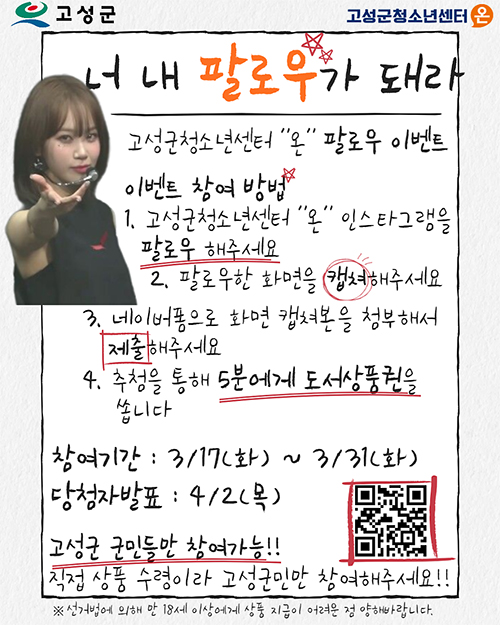 고성군
고성군청소년센터 온
너 내 팔로우가 돼라
고성군청소년센터 "온" 팔로우 이벤트
이벤트 참여 방법
1. 고성군청소년센터 "온" 인스타그램을
팔로우 해주세요
2. 팔로우한 화면을 캡쳐해주세요
3. 네이버폼으로 화면 캡쳐본을 첨부해서
제출해주세요
4. 추첨을 통해 5분에게 도서상품권을
쏩니다
참여기간 : 3/17(화) ~ 3/31(화)
당첨자발표 : 4/2(목)
고성군 군민들만 참여가능!!
직접 상품 수령이라 고성군민만 참여해주세요!!
※ 선거법에 의해 만 18세 이상에게 상품 지급이 어려운 점 양해바랍니다.